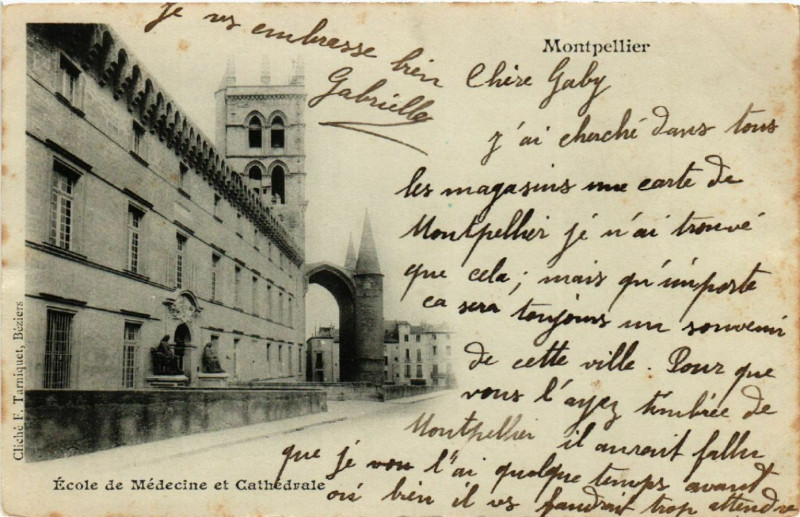 Montpellier
Chère Gaby
j'ai cherché dans tous
les magasins une carte de
Montpellier je n'ai trouvé
que cela ; mais qu'importe
ca sera toujours un souvenir
de cette ville. Pour que
vous l'ayez timbrée de
Montpellier il aurait fallu
que je l'ai quelque temps avant
où bien il vs faudrait trop attendre
Je vs embrasse bien
Gabrielle
École de Médecine et Cathédrale
Cliché F. Tarniquet, Béziers